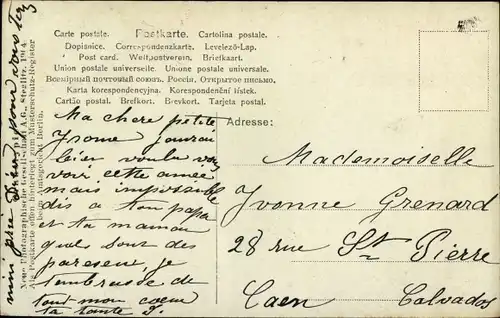 Carte postale. Postkarte. Cartolina postale.
Dopisnice. Correspondenzkarte. Levelező-Lap.
Post card. Weltpostverein. Briefkaart.
Union postale universelle. Unione postale universale.
Всемірный почтовый союзъ. Россія. Открытое письмо.
Karta korespondencyjna. Korespondenční lístek.
Cartão postal. Brefkort. Brevkort. Tarjeta postal.
Adresse:
Mademoiselle
Yvonne Grenard
28 rue St Pierre
Caen Calvados
Ma chere petite
Yvonne jaurai
bien voulu vous
voir cette année
mais impossible
dis a ton papa
et ta maman
quels sont des
paresseux, je
t'embrasse de
tout mon coeur
ta tante J.
mini prie Dieu pour vous
Neue Photographische Gesellschaft A.G., Steglitz. 1914
Als Postkarte offen hinterlegt zum Musterschutz-Register
beim Amtsgericht Berlin.